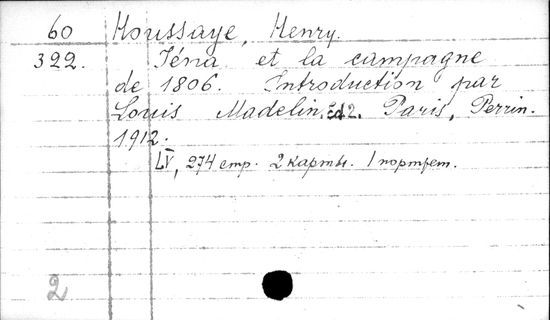 60 Houssaye, Henry.
322. Iéna et la campagne
de 1806. Introduction par
Louis Madelin. éd 2. Paris, Perrin.
1912.
LV, 274 стр. 2 карты. 1 портрет.
2